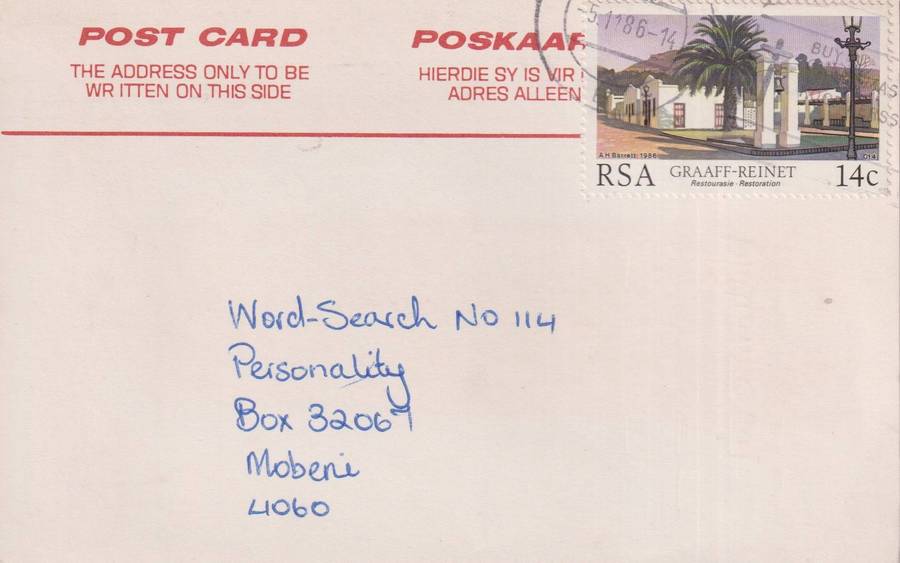 POST CARD
THE ADDRESS ONLY TO BE
WRITTEN ON THIS SIDE
POSKAAR
HIERDIE SY IS VIR
ADRES ALLEEN
5.11.86-14
BUY
A H Barrett 1986
RSA
GRAAFF-REINET
Restourasie · Restoration
14c
Word-Search No 114
Personality
Box 32067
Mobeni
4060